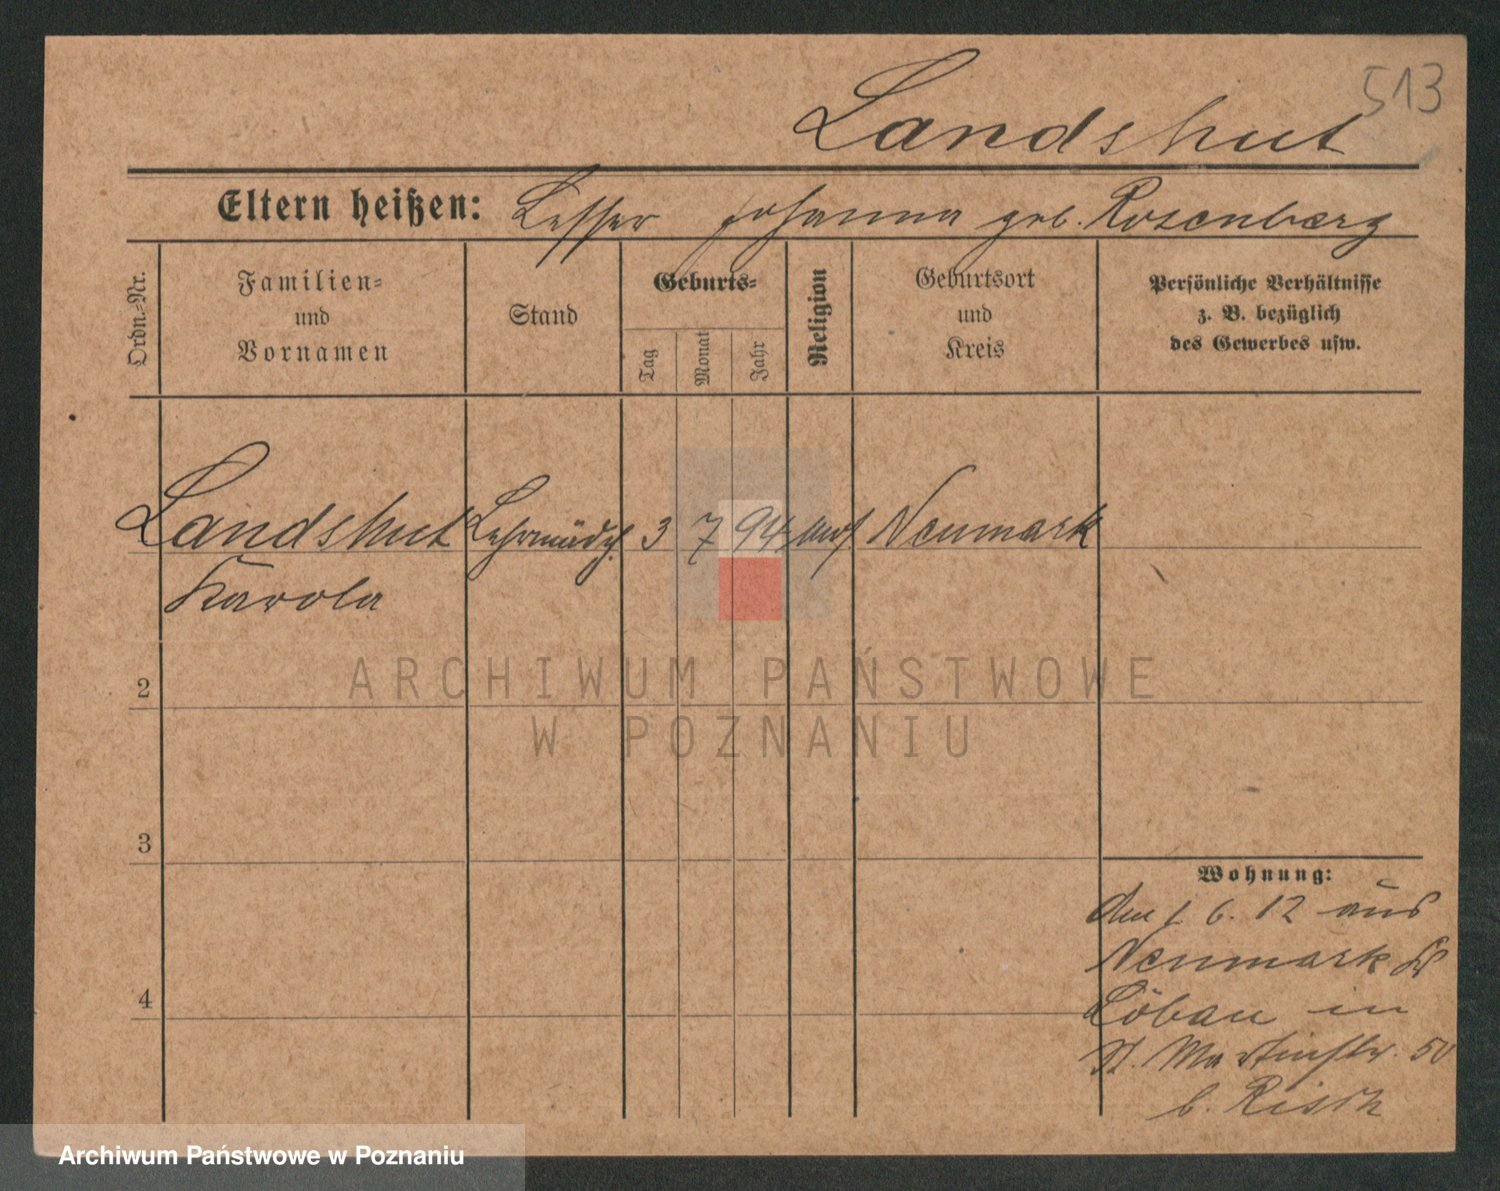 513
Landshut
Eltern heißen: Lesser Johanna geb. Rosenberg
Ordn.-Nr.
Familien-
und
Vornamen
Stand
Geburts-
Tag
Monat
Jahr
Religion
Geburtsort
und
Kreis
Persönliche Verhältnisse
z. B. bezüglich
des Gewerbes usw.
Landshut Lehrmädch. 3 7 94 mos. Neumark
Karola
2
3
4
Wohnung:
Am 1. 6. 12 aus
Neumark Kr
Löbau in
St. Martinstr. 50
b.
ARCHIWUM PAŃSTWOWE
W POZNANIU
Archiwum Państwowe w Poznaniu